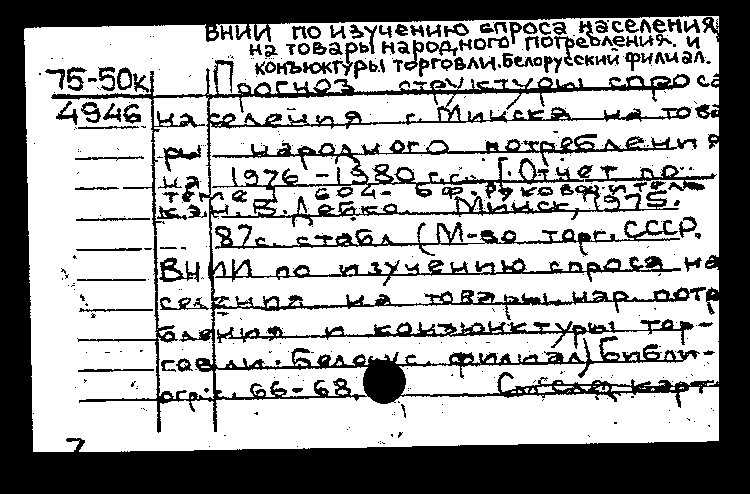 ВНИИ по изучению спроса населения
на товары народного потребления и
конъюктуры торговли. Белорусский филиал.
75-50к Прогноз структуры спроса
4946 населения г. Минска на това
ры народного потребления
на 1976-1980 г.г. [Отчет по
теме] 604- бф. руководитель
к.э.н. В. Дебко. Минск, 1975.
87с. стабл (М-во торг. СССР.
ВНИИ по изучению спроса на
селения на товары нар. потр
бления и конъюнктуры тор-
говли. Белорус. филиал) Библи-
огр: с. 66-68. карт
7